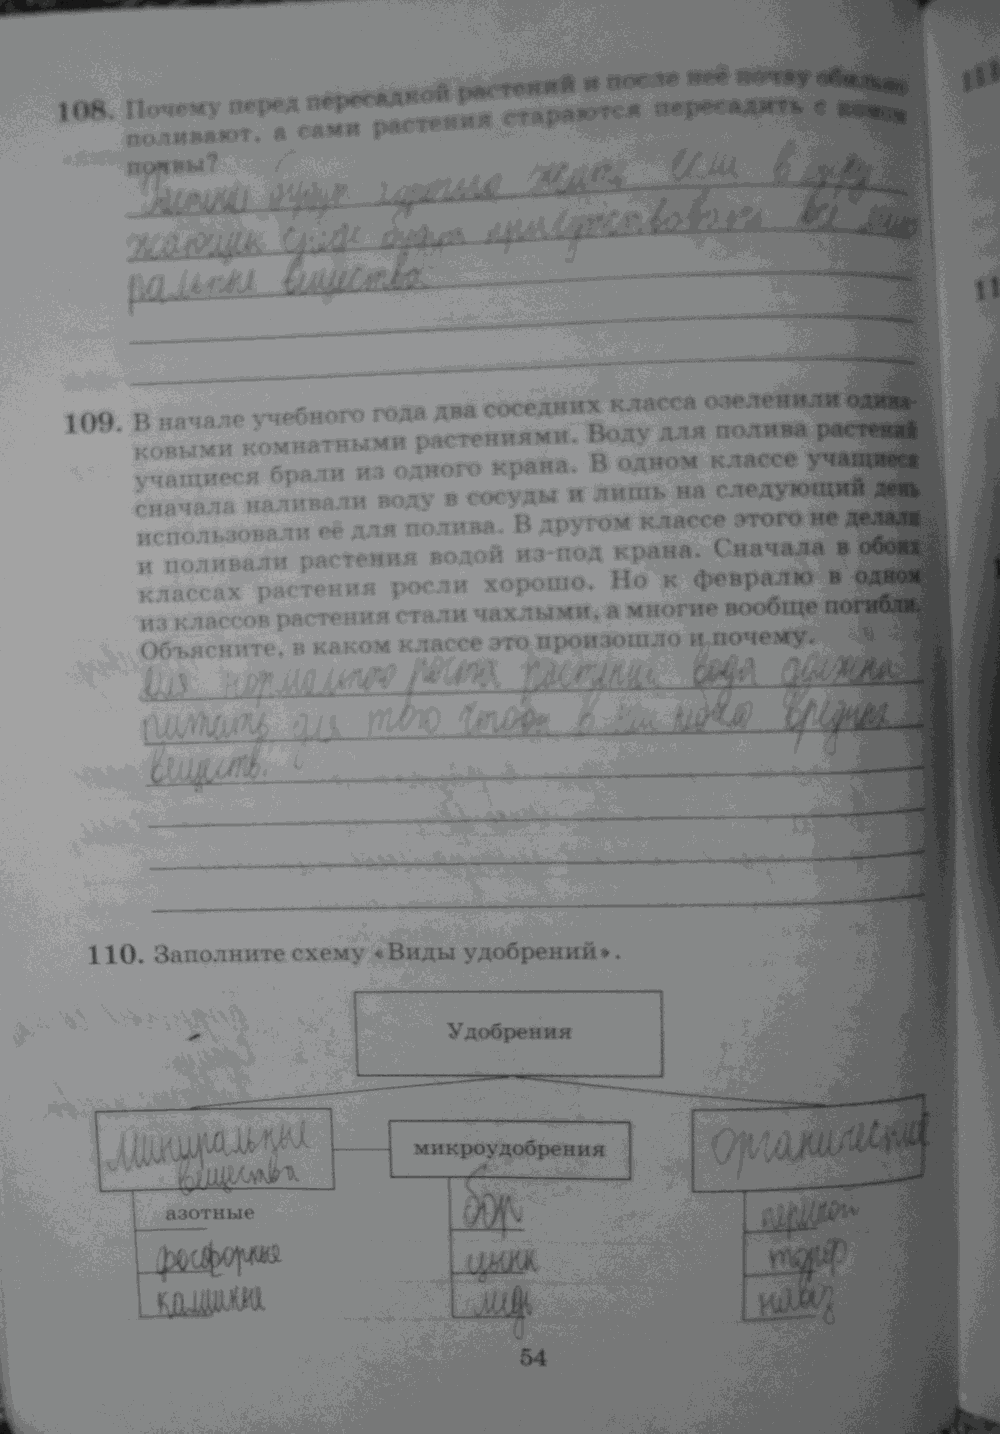 108. Почему перед пересадкой растений и после неё почву обильно
поливают, а сами растения стараются пересадить с комом
почвы?
будет если в окру
жающей среде будут присутствовать все мине
ральные вещества.
109. В начале учебного года два соседних класса озеленили одина-
ковыми комнатными растениями. Воду для полива растений
учащиеся брали из одного крана. В одном классе учащиеся
сначала наливали воду в сосуды и лишь на следующий день
использовали её для полива. В другом классе этого не делали
и поливали растения водой из-под крана. Сначала в обоих
классах растения росли хорошо. Но к февралю в одном
из классов растения стали чахлыми, а многие вообще погибли.
Объясните, в каком классе это произошло и почему.
Для нормального роста растений вода должна
для того чтобы в вредных
веществ.
110. Заполните схему «Виды удобрений».
Удобрения
Миниральные
вещества
микроудобрения
Органические
азотные
бор
фосфорные
цынк
торф
калийные
медь
навоз
54
111
11